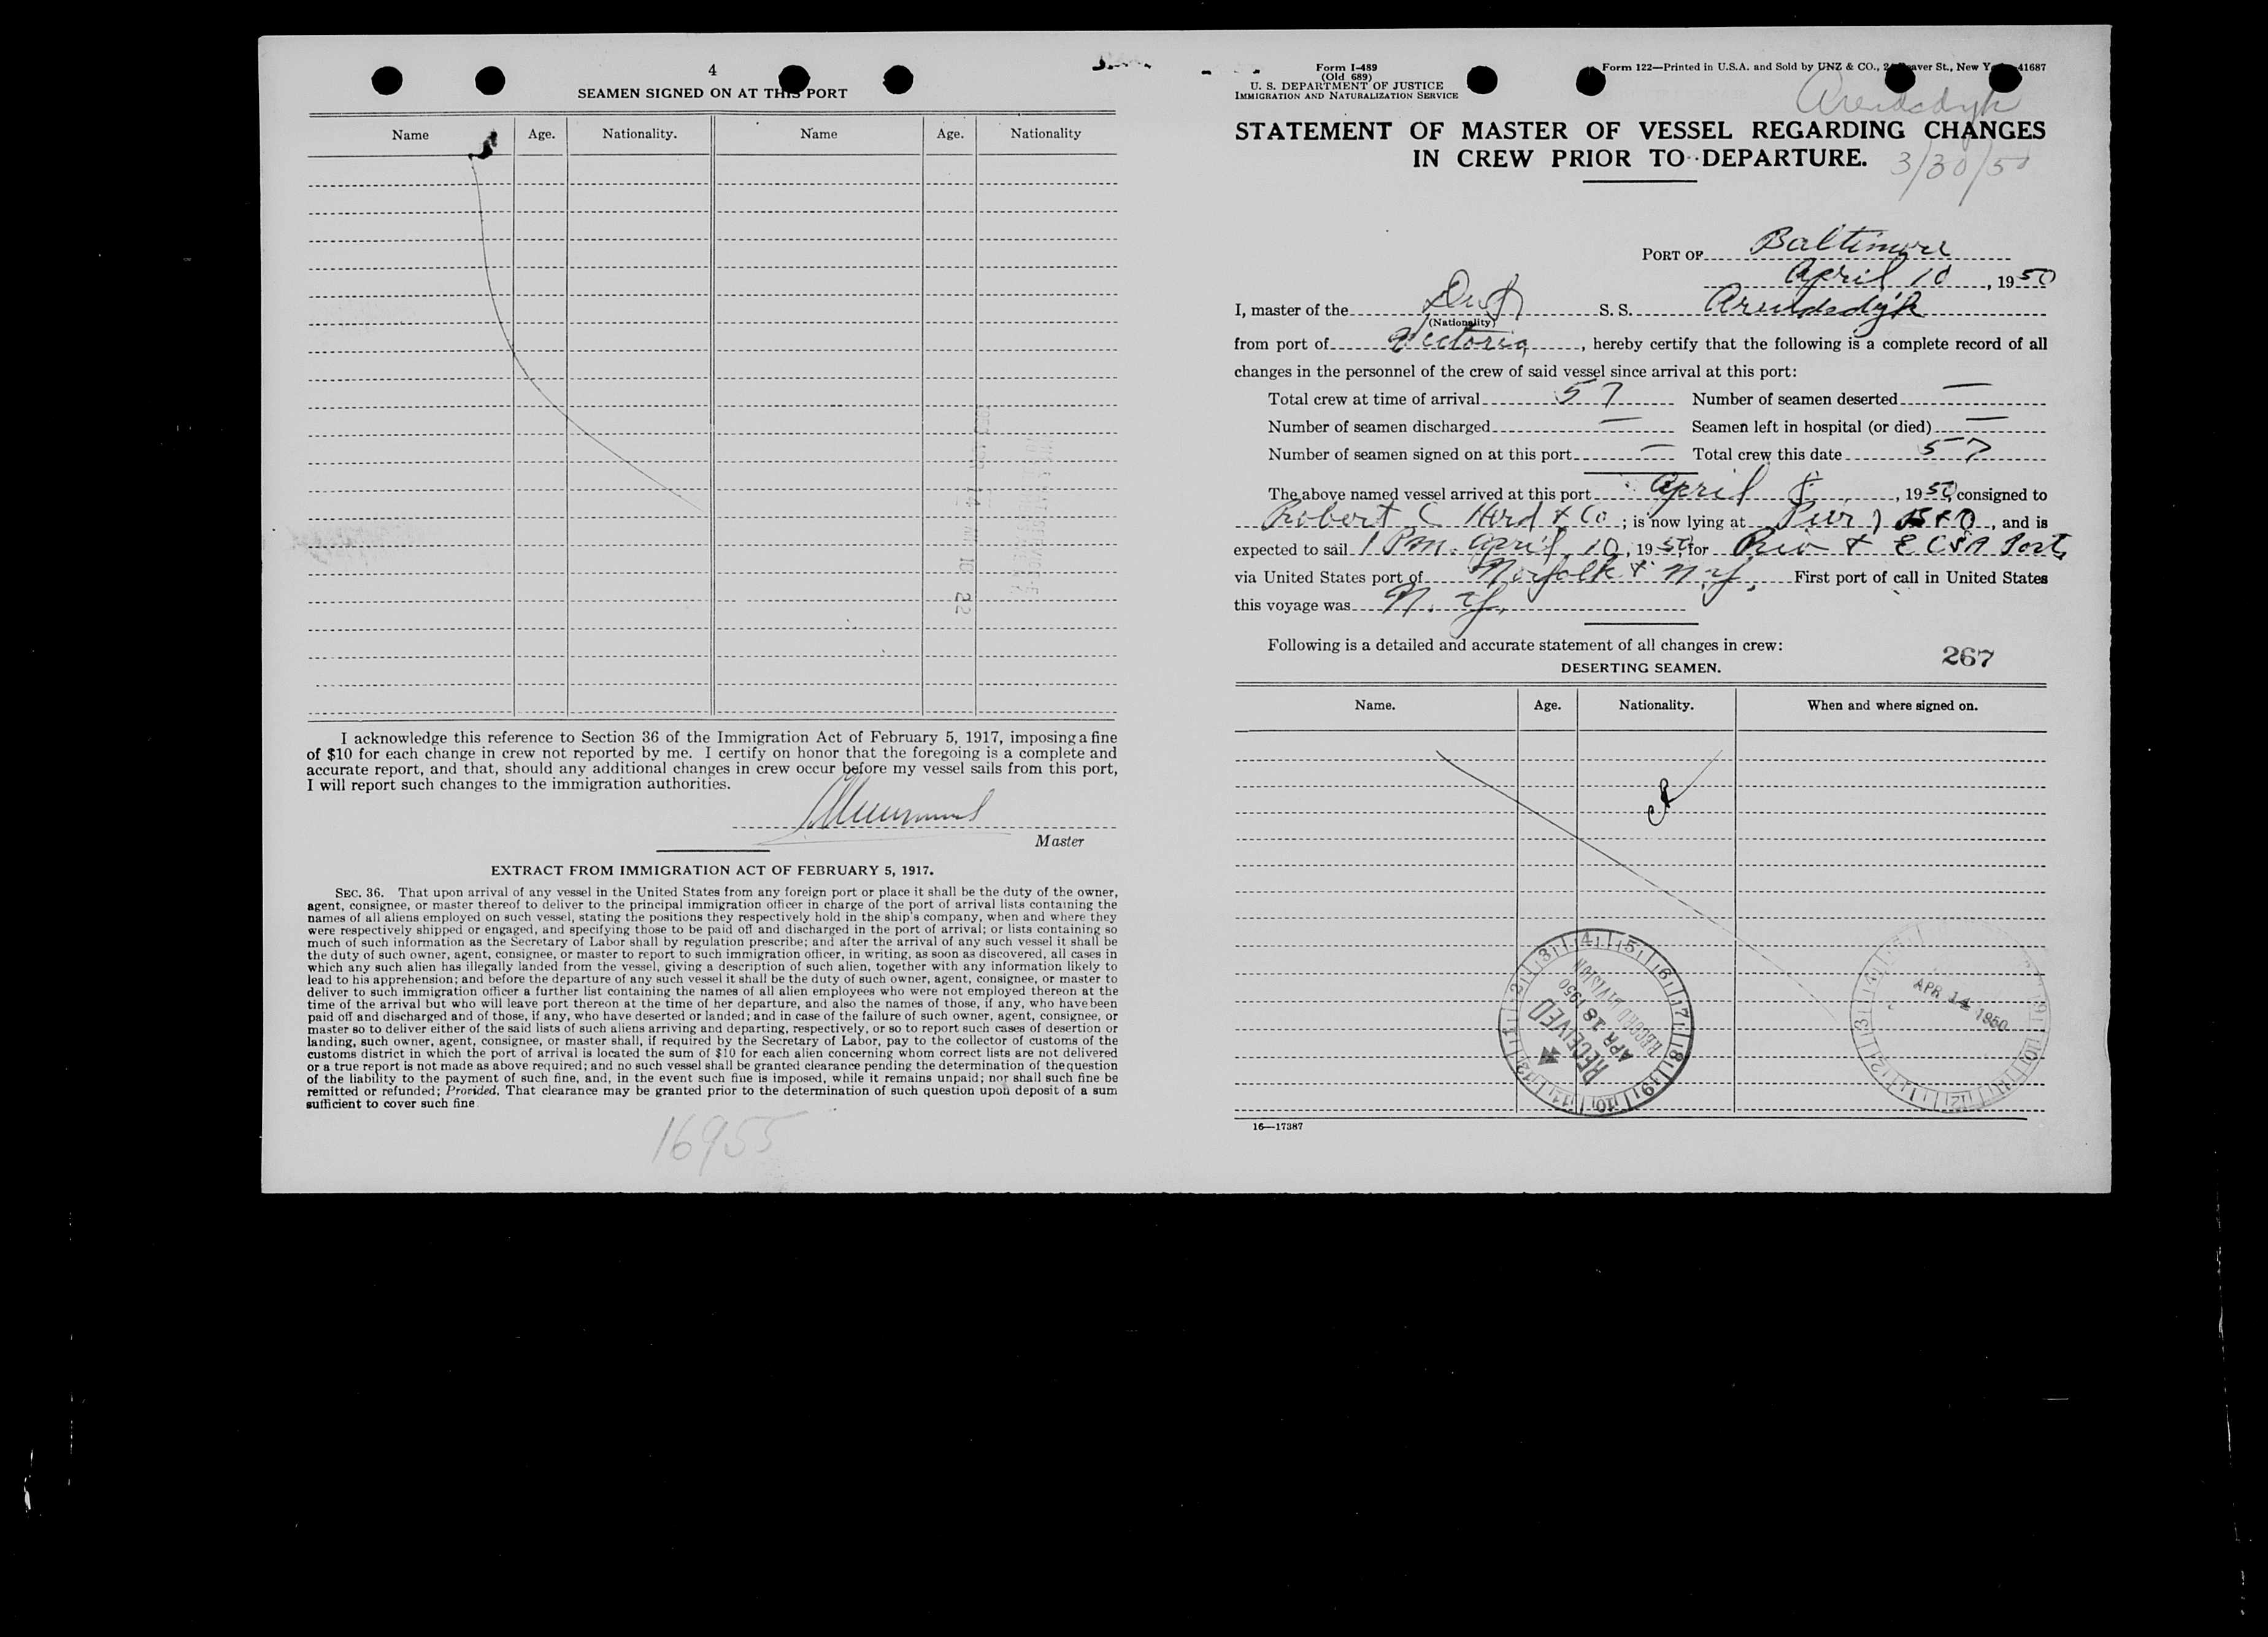 4
SEAMEN SIGNED ON AT THIS PORT
Name Age. Nationality. Name Age. Nationality
I acknowledge this reference to Section 36 of the Immigration Act of February 5, 1917, imposing a fine
of $10 for each change in crew not reported by me. I certify on honor that the foregoing is a complete and
accurate report, and that, should any additional changes in crew occur before my vessel sails from this port,
I will report such changes to the immigration authorities.
Master
EXTRACT FROM IMMIGRATION ACT OF FEBRUARY 5, 1917.
SEC. 36. That upon arrival of any vessel in the United States from any foreign port or place it shall be the duty of the owner,
agent, consignee, or master thereof to deliver to the principal immigration officer in charge of the port of arrival lists containing the
names of all aliens employed on such vessel, stating the positions they respectively hold in the ship's company, when and where they
were respectively shipped or engaged, and specifying those to be paid off and discharged in the port of arrival; or lists containing so
much of such information as the Secretary of Labor shall by regulation prescribe; and after the arrival of any such vessel it shall be
the duty of such owner, agent, consignee, or master to report to such immigration officer, in writing, as soon as discovered, all cases in
which any such alien has illegally landed from the vessel, giving a description of such alien, together with any information likely to
lead to his apprehension; and before the departure of any such vessel it shall be the duty of such owner, agent, consignee, or master to
deliver to such immigration officer a further list containing the names of all alien employees who were not employed thereon at the
time of the arrival but who will leave port thereon at the time of her departure, and also the names of those, if any, who have been
paid off and discharged and of those, if any, who have deserted or landed; and in case of the failure of such owner, agent, consignee, or
master so to deliver either of the said lists of such aliens arriving and departing, respectively, or so to report such cases of desertion or
landing, such owner, agent, consignee, or master shall, if required by the Secretary of Labor, pay to the collector of customs of the
customs district in which the port of arrival is located the sum of $10 for each alien concerning whom correct lists are not delivered
or a true report is not made as above required; and no such vessel shall be granted clearance pending the determination of the question
of the liability to the payment of such fine, and, in the event such fine is imposed, while it remains unpaid; nor shall such fine be
remitted or refunded; Provided, That clearance may be granted prior to the determination of such question upon deposit of a sum
sufficient to cover such fine.
16955
Form I-489
(Old 689)
U. S. DEPARTMENT OF JUSTICE
IMMIGRATION AND NATURALIZATION SERVICE
Form 122—Printed in U.S.A. and Sold by UNZ & CO., St., New 41687
Arendsdyk
STATEMENT OF MASTER OF VESSEL REGARDING CHANGES
IN CREW PRIOR TO DEPARTURE.
3/30/50
PORT OF Baltimore
April 10, 1950
I, master of the Dutch S. S. Arendsdyk
(Nationality)
from port of Victoria, hereby certify that the following is a complete record of all
changes in the personnel of the crew of said vessel since arrival at this port:
Total crew at time of arrival 57 Number of seamen deserted —
Number of seamen discharged — Seamen left in hospital (or died) —
Number of seamen signed on at this port — Total crew this date 57
The above named vessel arrived at this port April 8, 1950, consigned to
Robert C Herd & Co; is now lying at Pier 7 B&O, and is
expected to sail 1 Pm. April, 10, 1950, for Rio & ECSA Ports
via United States port of Norfolk & N.Y. First port of call in United States
this voyage was N.Y.
Following is a detailed and accurate statement of all changes in crew:
267
DESERTING SEAMEN.
Name. Age. Nationality. When and where signed on.
RECEIVED
APR 18 1950
RECORD DIVISION
APR 14 1950
16—17387